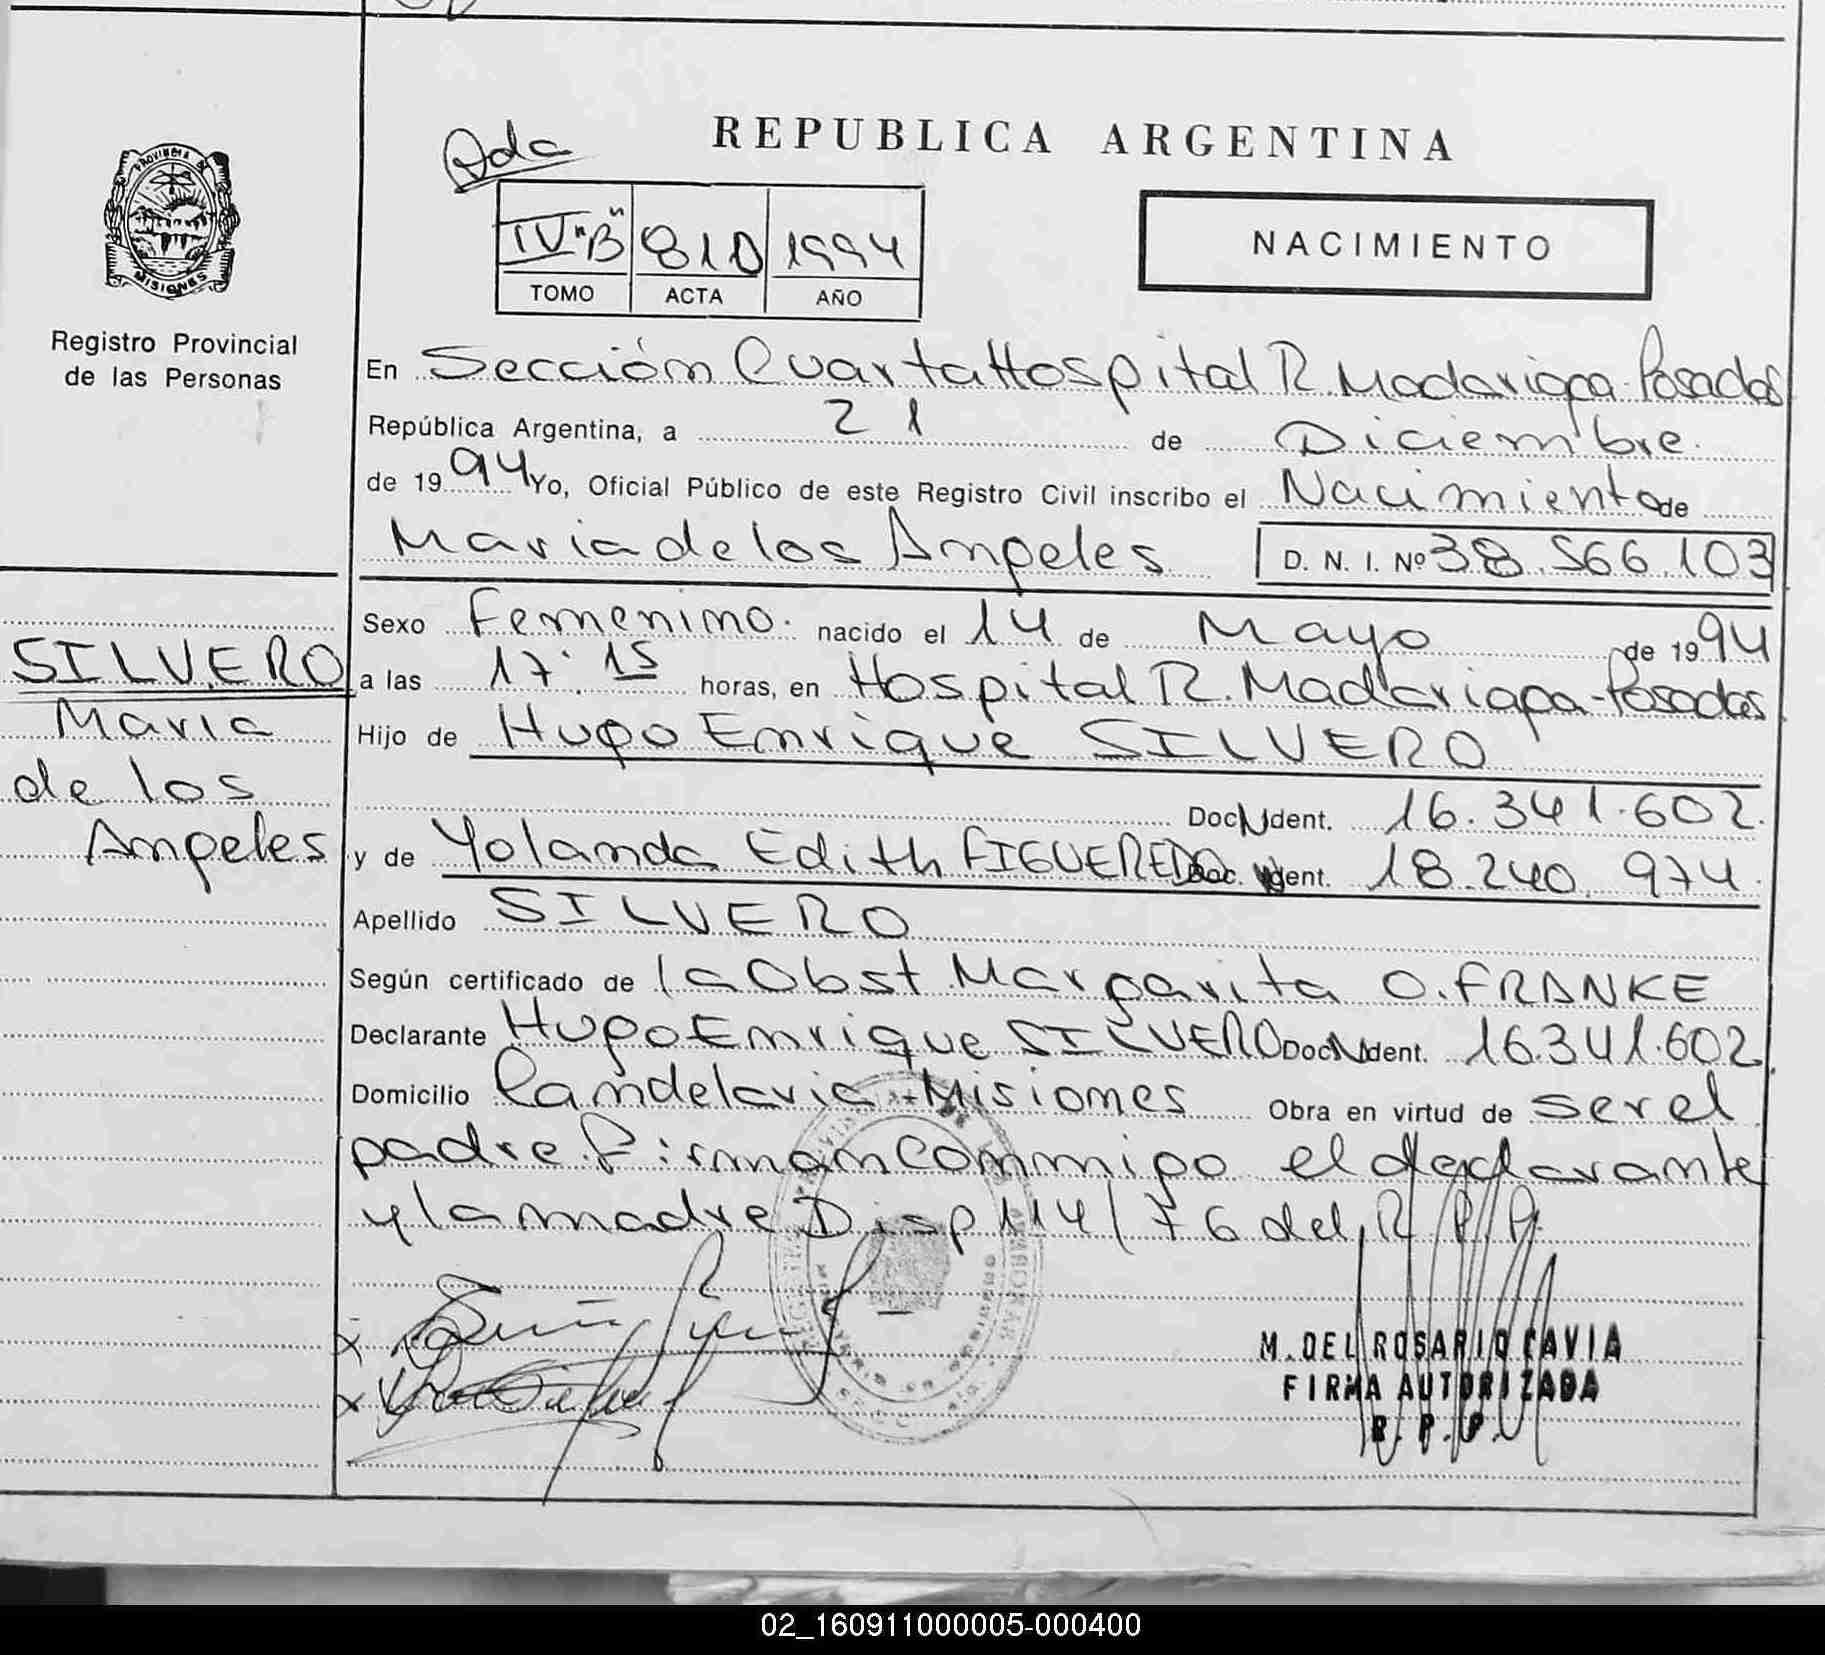 Ada
REPUBLICA ARGENTINA
PROVINCIA DE
MISIONES
IV "B" 810 1994
TOMO ACTA AÑO
NACIMIENTO
Registro Provincial
de las Personas
En Sección Cuarta Hospital R. Madariaga-Posadas
República Argentina, a 21 de Diciembre.
de 1994 Yo, Oficial Público de este Registro Civil inscribo el Nacimiento de
Maria de los Angeles D. N. I. Nº 38.566.103
SILVERO
Maria
de los
Angeles
Sexo Femenino. nacido el 14 de Mayo de 1994
a las 17:15 horas, en Hospital R. Madariaga-Posadas
Hijo de Hugo Enrique SILVERO
Doc N Ident. 16.341.602.
y de Yolanda Edith FIGUEREDO Doc. Ident. 18.240.974.
Apellido SILVERO
Según certificado de la Obst. Margarita O. FRANKE
Declarante Hugo Enrique SILVERO Doc N Ident. 16.341.602
Domicilio Candelaria-Misiones Obra en virtud de ser el
padre. Firman conmigo el declarante
y la madre Disp 114/76 del R.P.P.
x
x
M. DEL ROSARIO CAVIA
FIRMA AUTORIZADA
R. P. P.
02_160911000005-000400